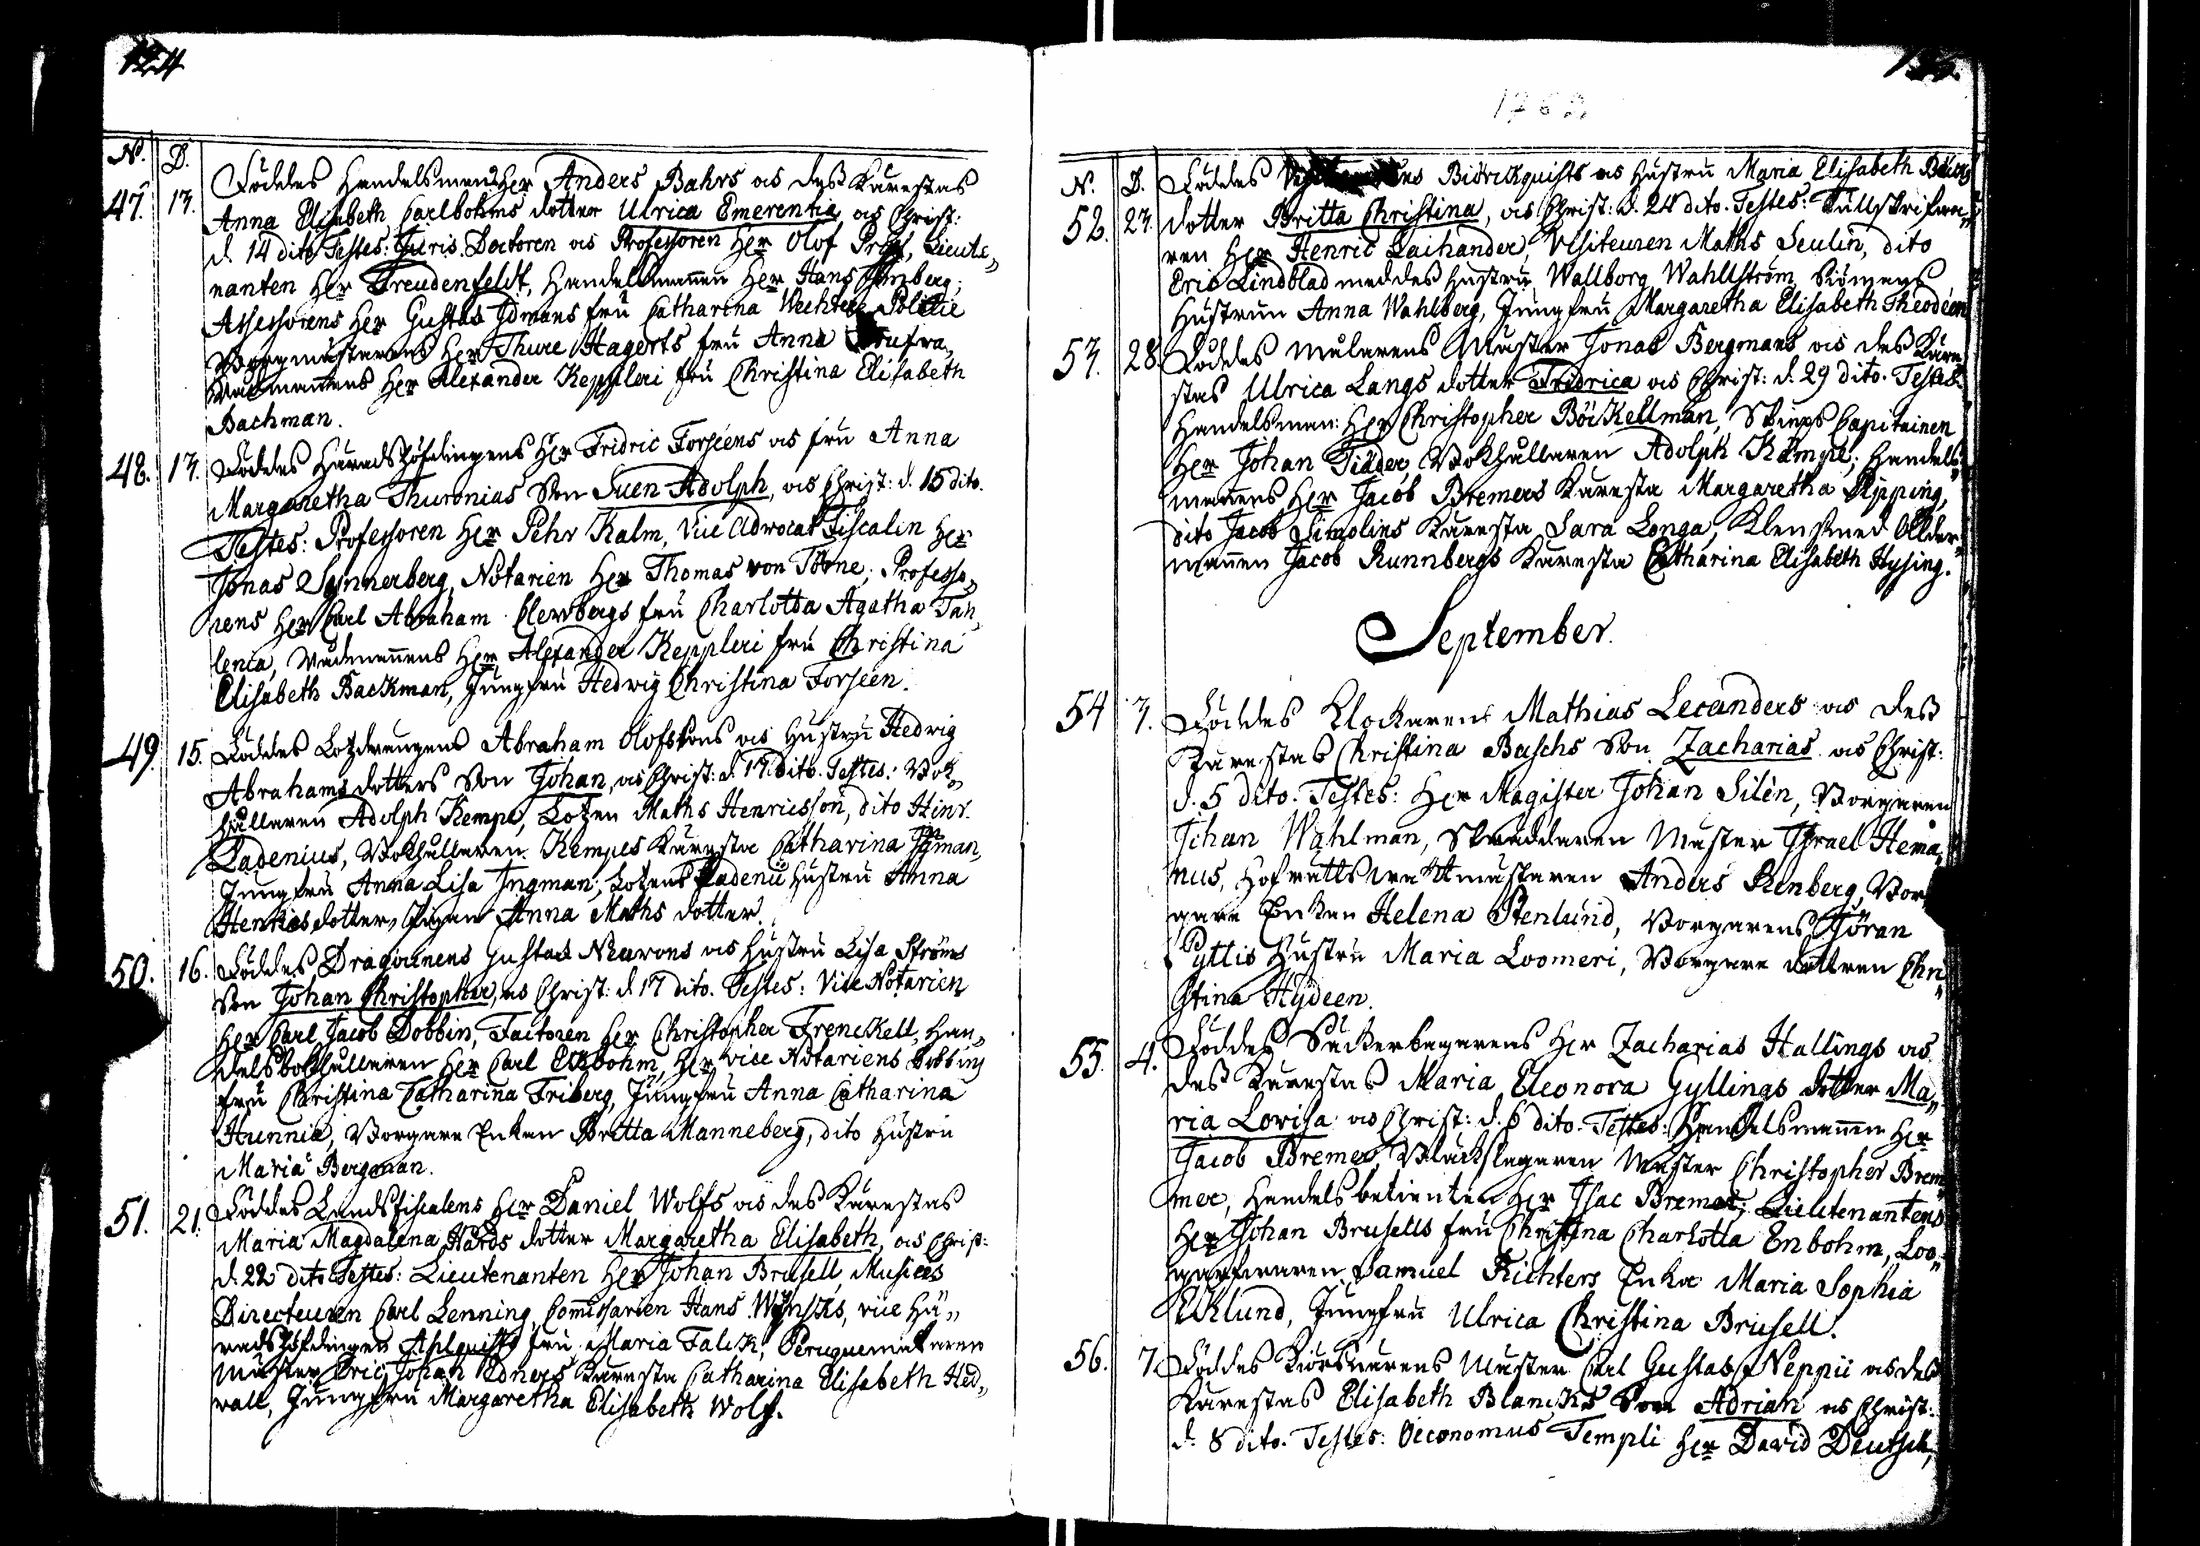 124
N. D.
47. 13. Föddes Handelsmans Her Anders Bahrs os dess KäreStas
Anna Elisabeth Carlbohms dotter Ulrica Emerentia, os Christ:
d. 14 dito Testes: Juris Doctoren os Professoren Her Olof Lieute„
nanten Her Freudenfeldt, Handelsmannen Her Hans
Assessorens Her Gustas Idmans fru Catharina Wechter Politie
Borgmästarens Her Thure Hagerts fru Anna
Rådmannens Her Alexander Keppleri fru Christina Elisabeth
Bachman.
48. 13. Föddes Häradshöfdingens Her Fridric Forséens os fru Anna
Margaretha Thuronias Son Suen Adolph, os Christ: d. 15 dito.
Testes: Professoren Her Pehr Kalm, Vice Advocat Fiscalen Her
Jonas Synnerberg, Notarien Her Thomas von Törne; Professo„
rens Her Carl Abraham Clewbergs fru Charlotta Agatha Tah„
lenca, Rådmannens Her Alexander Keppleri fru Christina
Elisabeth Backman, Jungfru Hedvig Christina Forséen.
49. 15. Föddes Lotzdrengens Abraham Olofssons os Hustru Hedvig
Abrahams dotters Son Johan, os Christ: d. 17 dito. Testes: Bok„
hållaren Adolph Kempe, Lotzen Maths Henricsson, dito Hinr.
Ladenius, Bokhållaren Kempes Kæresta Catharina Ingman,
Jungfru Anna Lisa Ingman; Lotzens Ladenii Hustru Anna
Henricsdotter, Pigan Anna Maths dotter.
50. 16. Föddes Dragounens Gustas Neurons os Hustru Lisa Ströms
Son Johan Christopher, os Christ: d. 17 dito. Testes: Vice Notarien
Her Carl Jacob Dobbin, Factoren Her Christopher Frenckell, Han„
delsbokhållaren Her Carl Ekbohm, Her vice Notariens Dobbins
fru Christina Catharina Friberg, Jungfru Anna Catharina
Hunnia, Borgare Enkan Britta Manneberg, dito Hustru
Maria Bergman.
51. 21. Föddes Landsfiscalens Her Daniel Wolfs os dess Kärestas
Maria Magdalena Hårds dotter Margaretha Elisabeth, os Christ:
d. 22 dito Testes: Lieutenanten Her Johan Brusell, Musices
Directeuren Carl Lenning, Commissarien Hans Wynscks, vice Hä„
radshöfdingen Ahlquists fru Maria Falck, Peruquemakaren
Mäster Eric Johan Edners Kæresta Catharina Elisabeth Hed„
vall, Jungfru Margaretha Elisabeth Wolf.
N. D.
52. 23. Föddes Biörckquists os Hustru Maria Elisabeth
dotter Britta Christina, os Christ: d. 24 dito. Testes: Tullskrifwa„
ren Her Henric Laihander, Visiteuren Maths Seulin, dito
Eric Lindblad med dess Hustru Wallborg Wahllström, Siömans
Hustrun Anna Wahlberg, Jungfru Margaretha Elisabeth Theodéen
53. 28. Föddes Målarens Mäster Jonas Bergmans os dess Käre„
stas Ulrica Langs dotter Fridrica os Christ: d. 29 dito. Testes:
Handelsman: Her Christopher Böckellman, Skieps Capitainen
Her Johan Tilder, Bokhållaren Adolph Kämpe; Handels„
mannens Her Jacob Bremers Kæresta Margaretha Pipping,
dito Jacob Simolins Kæresta Sara Longa, Klensmed Ålder„
mannen Jacob Runnbergs Kæresta Catharina Elisabeth Hysing.
September.
54 3. Föddes Klockarens Mathias Lecanders os dess
Kærestas Christina Baschs Son Zacharias os Christ:
d. 5 dito. Testes: Her Magister Johan Silèn, Borgaren
Johan Wahlman, Skreddaren Mäster Israel Hema„
nus, Hofrätts Wachtmästaren Anders Renberg, Bor„
gare Enkan Helena Stenlund, Borgarens Jöran
Pyttis Hustru Maria Loomeri, Borgare dottren Chri„
stina Hydeen.
55. 4. Föddes Sockerbagarens Her Zacharias Hallings os
dess Kærestas Maria Eleonora Gyllings dotter Ma„
ria Lovisa os Christ: d. 6 dito. Testes: Handelsmannen Her
Jacob Bremer, Bleckslagaren Mäster Christopher Brem„
mer, Handelsbetienten Her Isac Bremer; Lieutenantens
Her Johan Brusells fru Christina Charlotta Enbohm, Loo„
garfwaren Samuel Richters Enka Maria Sophia
Eklund, Jungfru Ulrica Christina Brusell.
56. 7. Föddes Körsnärens Mäster Carl Gustas Neppii os dess
Kærestas Elisabeth Blancks Son Adrian os Christ:
d. 8 dito. Testes: Oeconomus Templi Her David Deutsch,